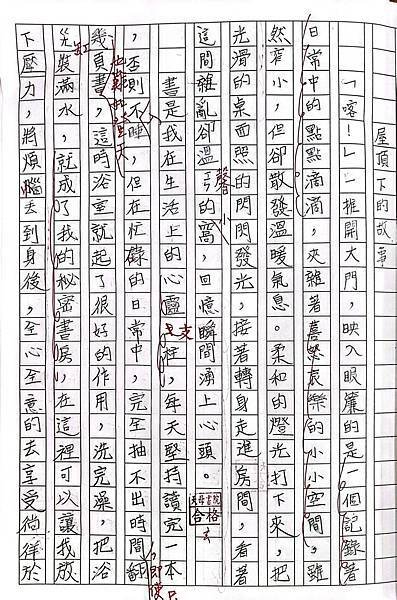 屋頂下的故事
「喀！」一推開大門，映入眼簾的是一個記錄著
日常中的點點滴滴，夾雜著喜怒哀樂的小小空間，雖
然窄小，但卻散發溫暖氣息。柔和的燈光打下來，把
光滑的桌面照的閃閃發光，接著轉身走進房間，看著
這間雜亂卻溫馨的小窩，回憶瞬間湧上心頭。
書是我在生活上的心靈支柱，每天堅持讀完一本
，否則不睡，但在忙錄的日常中，完全抽不出時間翻
幾頁書，這時浴室就起了很好的作用，洗完澡，把浴
缸裝滿水，就成了我的秘密書房，在這裡可以讓我放
下壓力，將煩惱丟到身後，至心至意的去享受徜徉於
合格
即使只